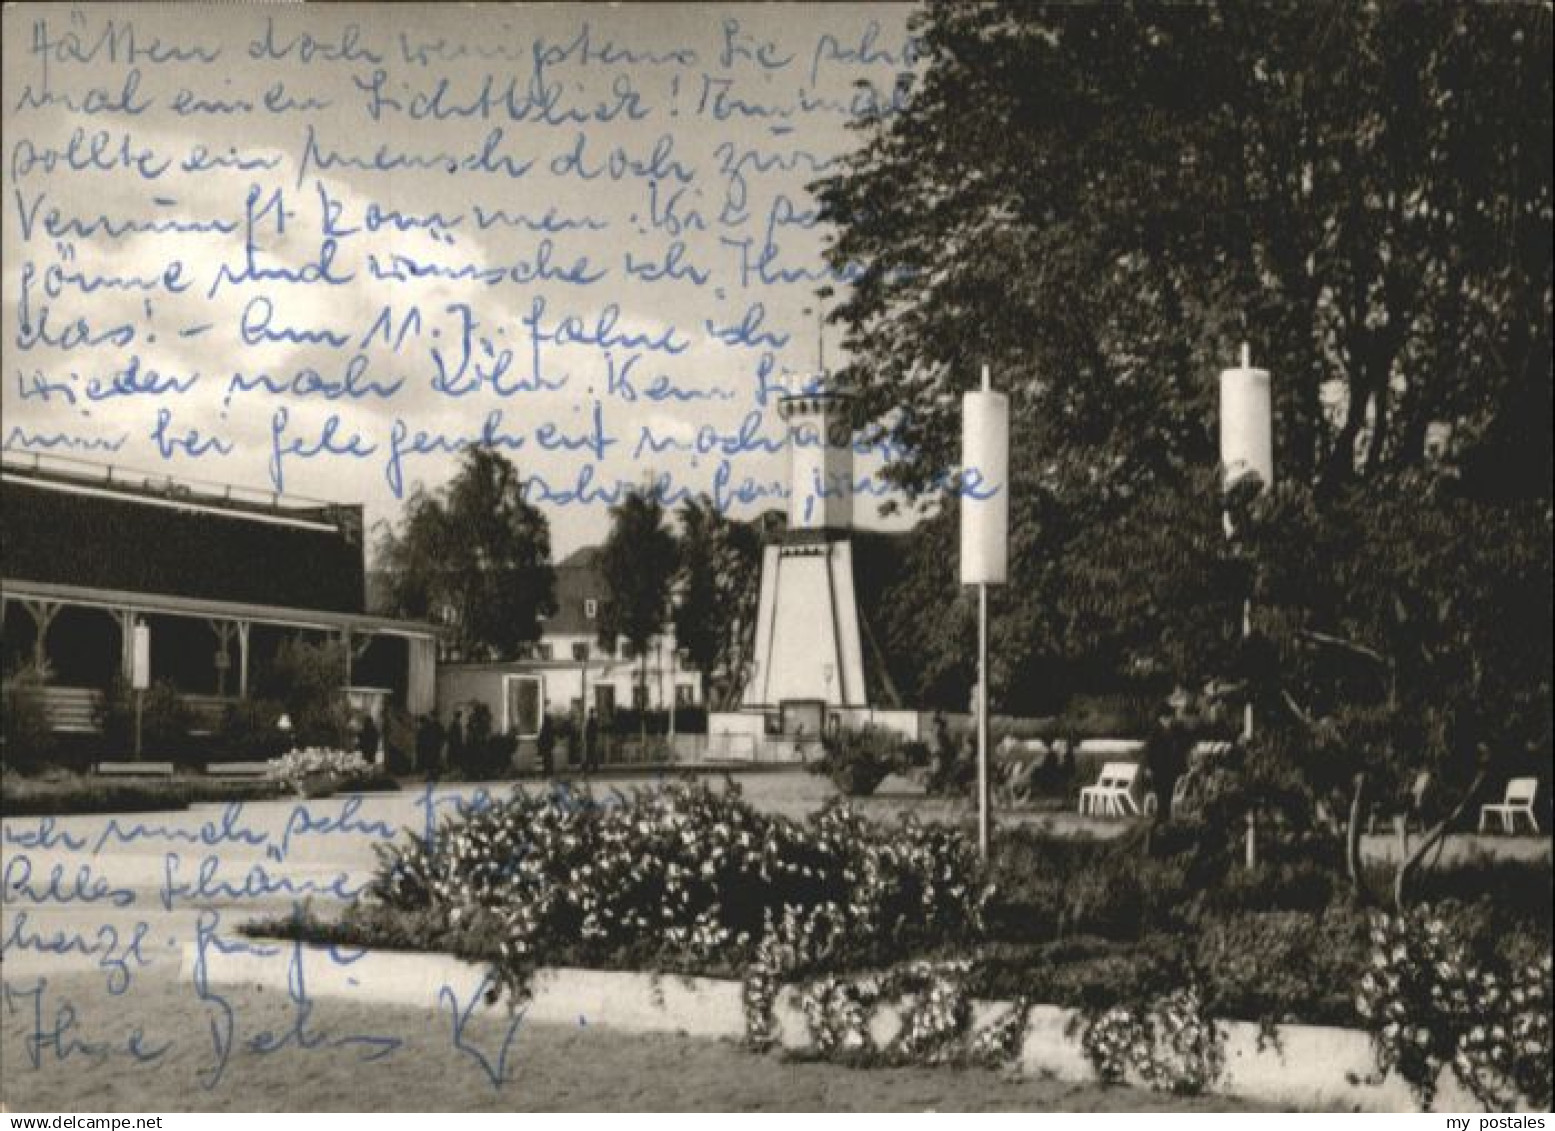 Hätten doch wenigstens Sie scho
mal einen Lichtblick! Einmal
sollte ein Mensch doch zur
Vernunft kommen. Wie se
gönne und wünsche ich Ihnen
das! - Am 11.7. fahre ich
wieder nach Köln. Wenn Sie
mir bei Gelegenheit noch mal
schreiben, würde
ich mich sehr freuen
Alles Schöne
herzl. Grüße
Ihre
my postales